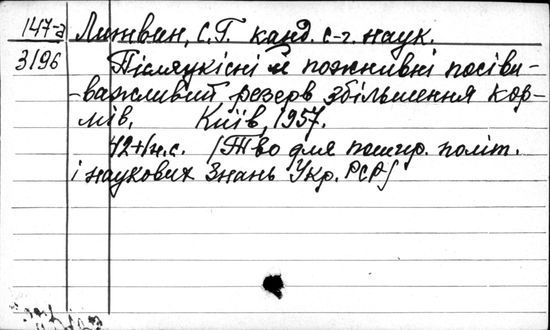 147-а Литвин, С.Г. канд. с-г. наук.
3196 Післяукісні й пожнивні посіви -
-важливий резерв збільшення кор-
мів. Київ, 1957.
42+1н.с. [Т-во для пошир. політ.
і наукових знань Укр. РСР]